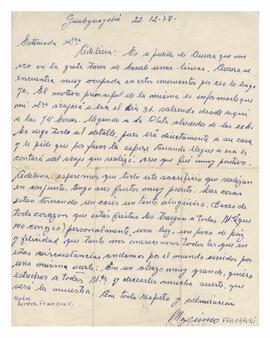 Gualeguaychú 22-12-78-
Estimada Sra
Adelina: Es a pedido de Aurora que me
veo en la grata tarea de hacerle unas líneas. Aurora se
encuentra muy ocupada en estos momentos por eso lo hago
yo. El motivo principal de la misma es informarle que
mi Sra viajará a el día 31 saliendo desde aquí
a las 14 horas. llegando a La Plata alrededor de las 20 hs.
les dejo todo el detalle, pues irá directamente a su casa
y le pide que por favor la espere. Cuando llegue a esa le
contará del viaje que realizó, creo que fué muy positivo.
Adelina, esperemos que todo este sacrificio que realizan
en conjunto, tenga sus frutos muy pronto. Las cosas
están tomando un cariz un tanto alagüeño. Deseo
de todo corazón que estas fiestas les traigan a todas Uds (que
no conozco) personalmente, una luz, un poco de paz
y felicidad que tanto nos merecemos todos los que en
estas circunstancias andamos por el mundo unidos por
una misma suerte. En un abrazo muy grande, quiero
estrechar a todas Uds y desearles mucha suerte, que
será la nuestra. Con todo respeto y admiración
Maximo
Aurora